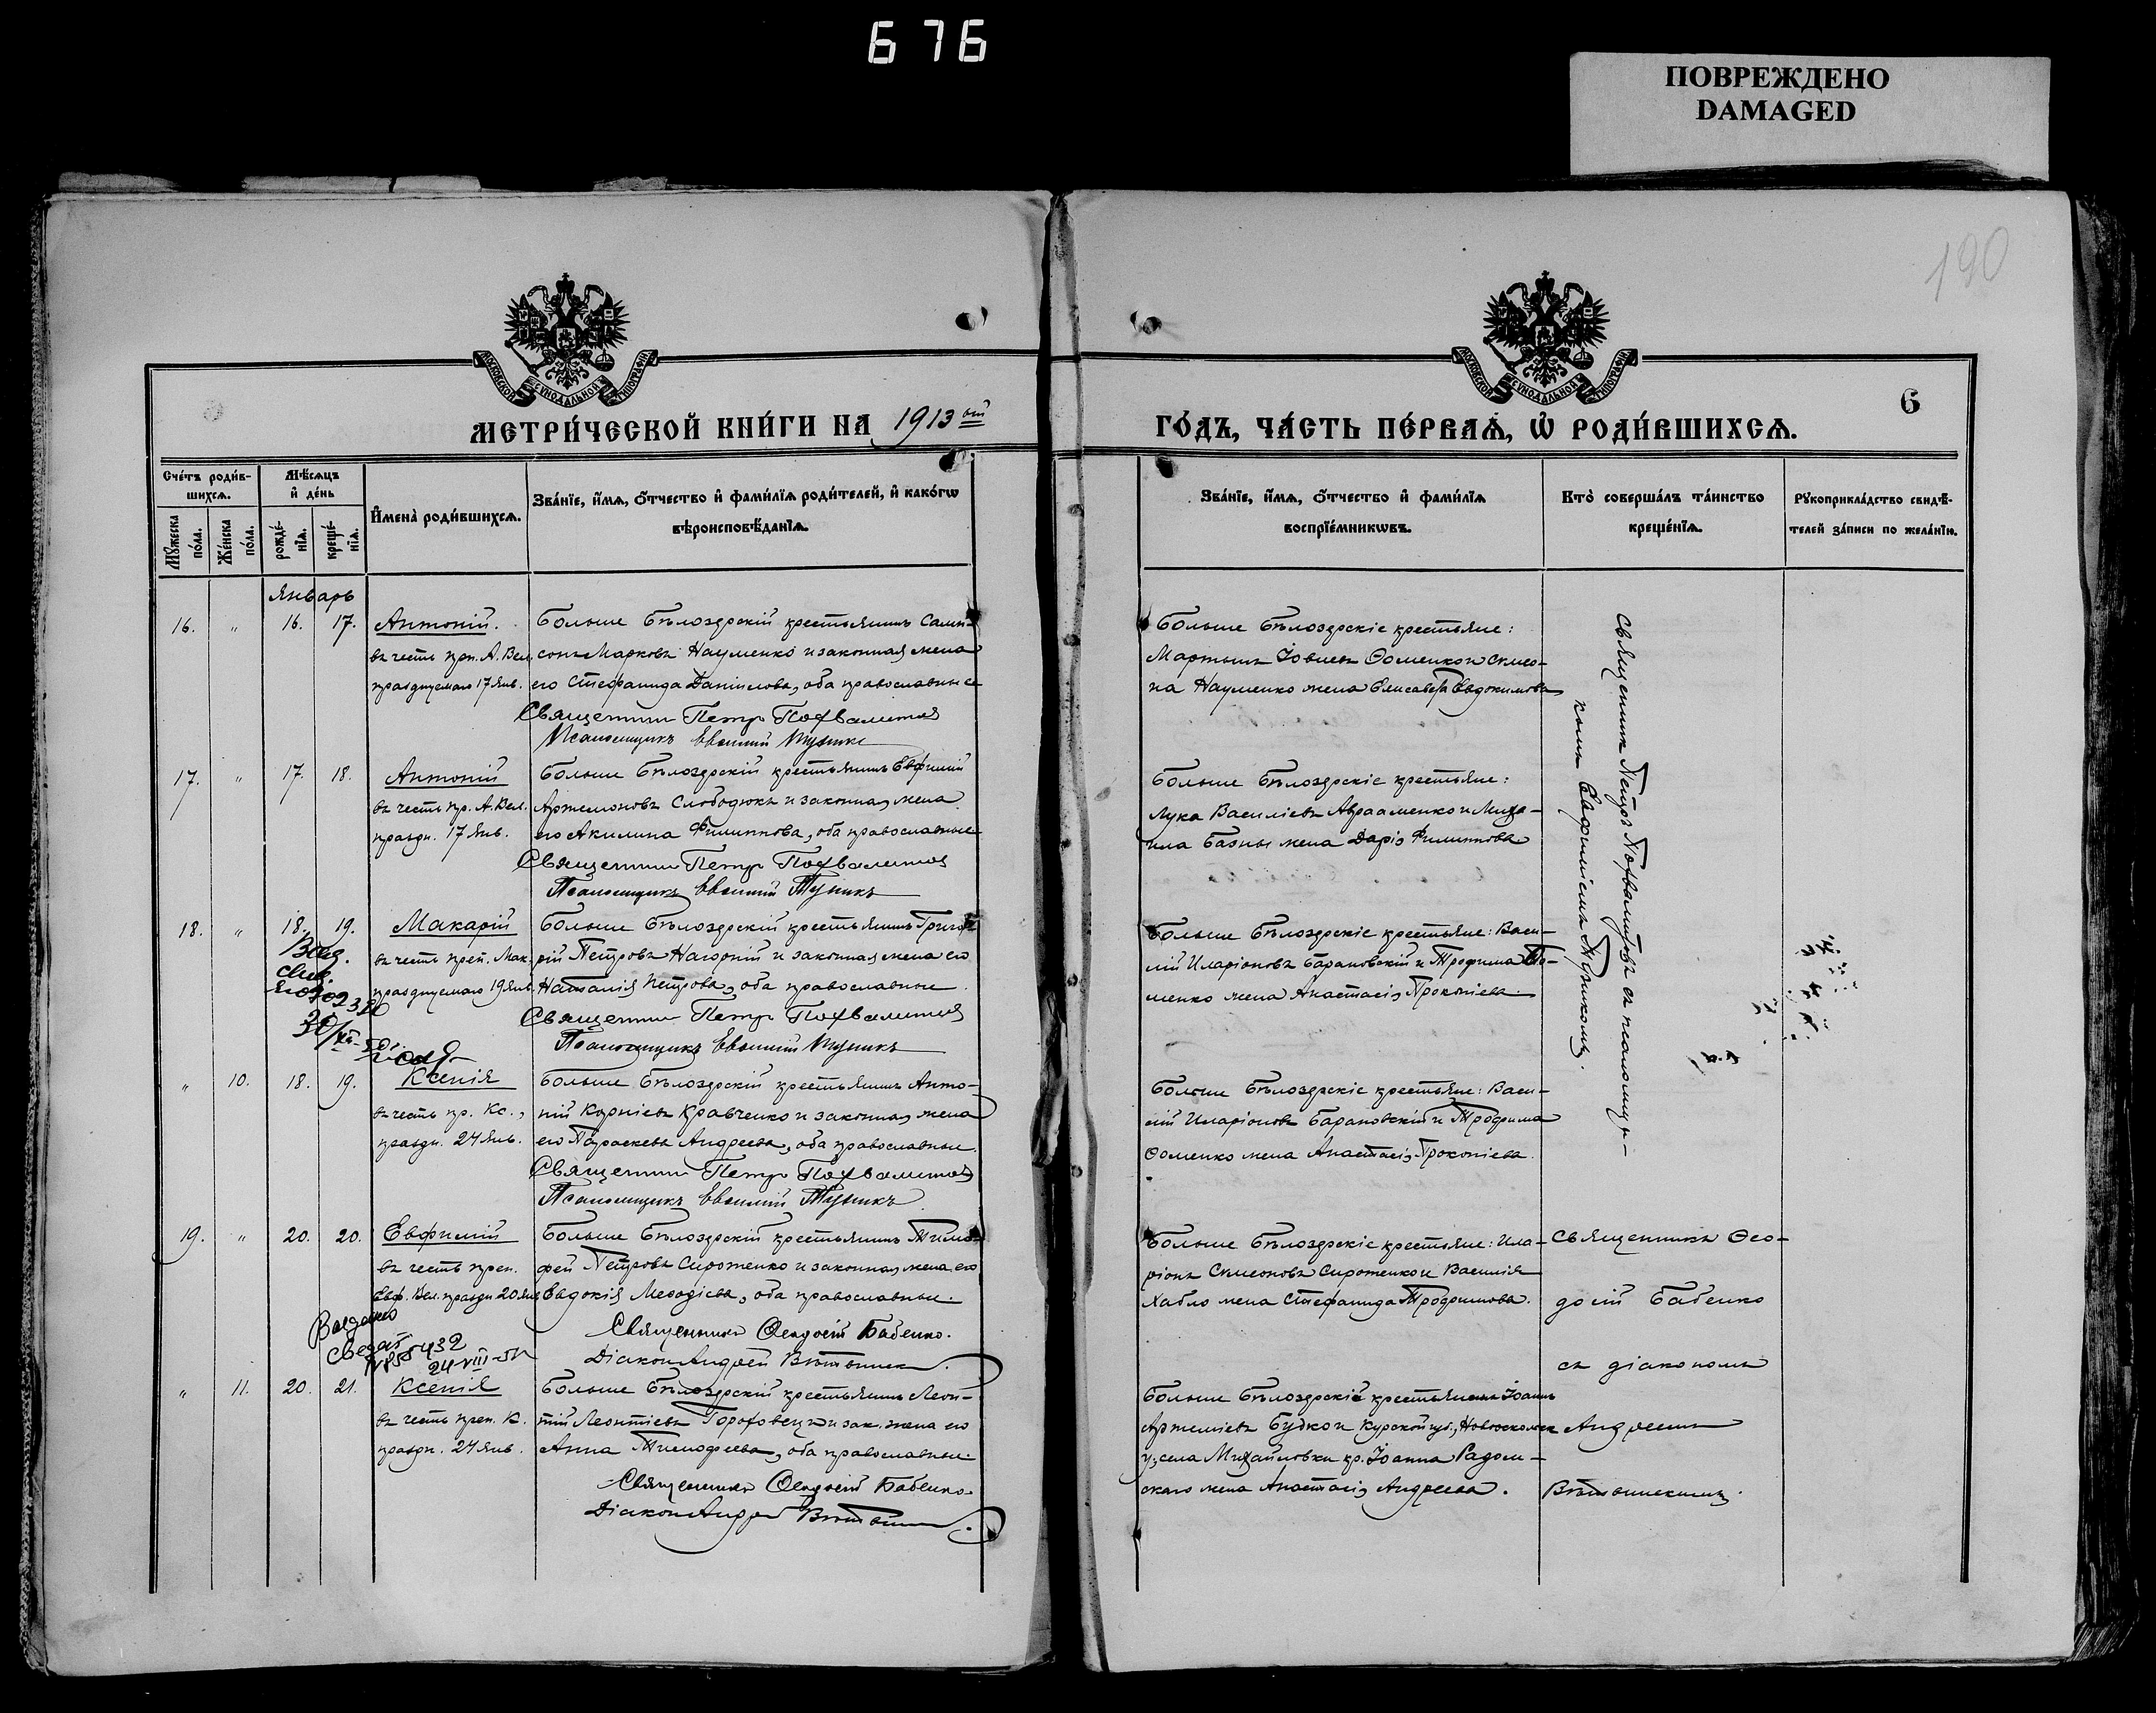 676
ПОВРЕЖДЕНО
DAMAGED
190
МОСКОВСКОЙ СѴНОДАЛЬНОЙ ТИПОГРАФІИ
МОСКОВСКОЙ СѴНОДАЛЬНОЙ ТИПОГРАФІИ
6
МЕТРИ́ЧЕСКОЙ КНИ́ГИ НА 1913 ый
ГО́ДЪ, ЧА́СТЬ ПЕ́РВАѦ, Ѡ҆ РОДИ́ВШИХСѦ.
Сче́тъ роди́в-
шихсѧ.
Мѣ́сѧцъ
и҆ де́нь
Мꙋ́жеска по́ла.
Же́нска по́ла.
рожде́-нїѧ.
креще́-нїѧ.
И҆мена̀ роди́вшихсѧ.
Зва́нїе, и҆́мѧ, ѻ҆́тчество и҆ фами́лїѧ роди́телей, и҆ како́гѡ
вѣроисповѣ́данїѧ.
Зва́нїе, и҆́мѧ, ѻ҆́тчество и҆ фами́лїѧ
воспрїе́мникѡвъ.
Кто̀ соверша́лъ та́инство
креще́нїѧ.
Рꙋкоприкла́дство свидѣ́-
телей за́писи по жела́нїю.
Январь
16. " 16. 17. Антоній.
въ честь прп. А. Вел.
празднуемаго 17 Янв.
Больше Бѣлозерскій крестьянинъ Самп-
сонъ Марковъ Науменко и законная жена
его Стефанида Даніилова, оба православные
Священник Петр Похвалитов
Псаломщикъ Евфимій Тупикъ
Больше Бѣлозерскіе крестьяне:
Мартынъ Іовлевъ Ѳоменко и Симео-
на Науменко жена Елисавета Евдокимова
Священник Петръ Похвалитовъ съ псаломщи-
комъ Евфиміемъ Тупикомъ.
17. " 17. 18. Антоній
въ честь пр. А. Вел.
праздн. 17 Янв.
Больше Бѣлозерскій крестьянинъ Евфимій
Артемоновъ Слободюкъ и законная жена
его Акилина Филиппова, оба православные
Священник Петр Похвалитов
Псаломщикъ Евфимій Тупикъ
Больше Бѣлозерскіе крестьяне:
Лука Василіевъ Авраменко и Миха-
ила жена Дарія Филиппова
18. " 18. 19. Макарій
въ честь преп. Мак.
празднуемаго 19 Янв.
Больше Бѣлозерскій крестьянинъ Григо-
рій Петровъ Нагорній и законная жена его
Наталія Петрова, оба православные.
Священник Петр Похвалитов
Псаломщикъ Евфимій Тупикъ
Больше Бѣлозерскіе крестьяне: Васи-
лій Иларіоновъ Барановскій и Трофима Ѳо-
менко жена Анастасія Прокопіева.
" 10. 18. 19. Ксенія
въ честь пр. Кс.,
праздн. 24 Янв.
Больше Бѣлозерскій крестьянинъ Анто-
ній Корніевъ Кравченко и законная жена
его Параскева Андреева, оба православные.
Священник Петр Похвалитов
Псаломщикъ Евфимій Тупикъ
Больше Бѣлозерскіе крестьяне: Васи-
лій Иларіоновъ Барановскій и Трофима
Ѳоменко жена Анастасія Прокопіева.
19. " 20. 20. Евфимій
въ честь преп.
Евф. Вел. праздн. 20 Янв.
Больше Бѣлозерскій крестьянинъ Тимо-
фей Петровъ Сироженко и законная жена его
Евдокія Меѳодіева, оба православные.
Священникъ Ѳеодосій Бабенко.
Діаконъ Андрей
Больше Бѣлозерскіе крестьяне: Ила-
ріонъ Симеоновъ Сироженко и Василія
Хабло жена Стефанида Трофимова.
Священникъ Ѳео-
досій Бабенко
съ діакономъ
Выдано
24-VIII-
" 11. 20. 21. Ксенія
въ честь преп. К.
праздн. 24 Янв.
Больше Бѣлозерскій крестьянинъ Леон-
тій Леонтіевъ Гороховецъ и зак. жена его
Анна Тимофеева, оба православные.
Священникъ Ѳеодосій Бабенко.
Діаконъ Андрей
Больше Бѣлозерскій крестьянинъ Іоаннъ
Артеміевъ Будко и Курской губ., Новооскольск.
у., села Михайловки кр. Іоанна Радом-
скаго жена Анастасія Андреева.
Андреемъ